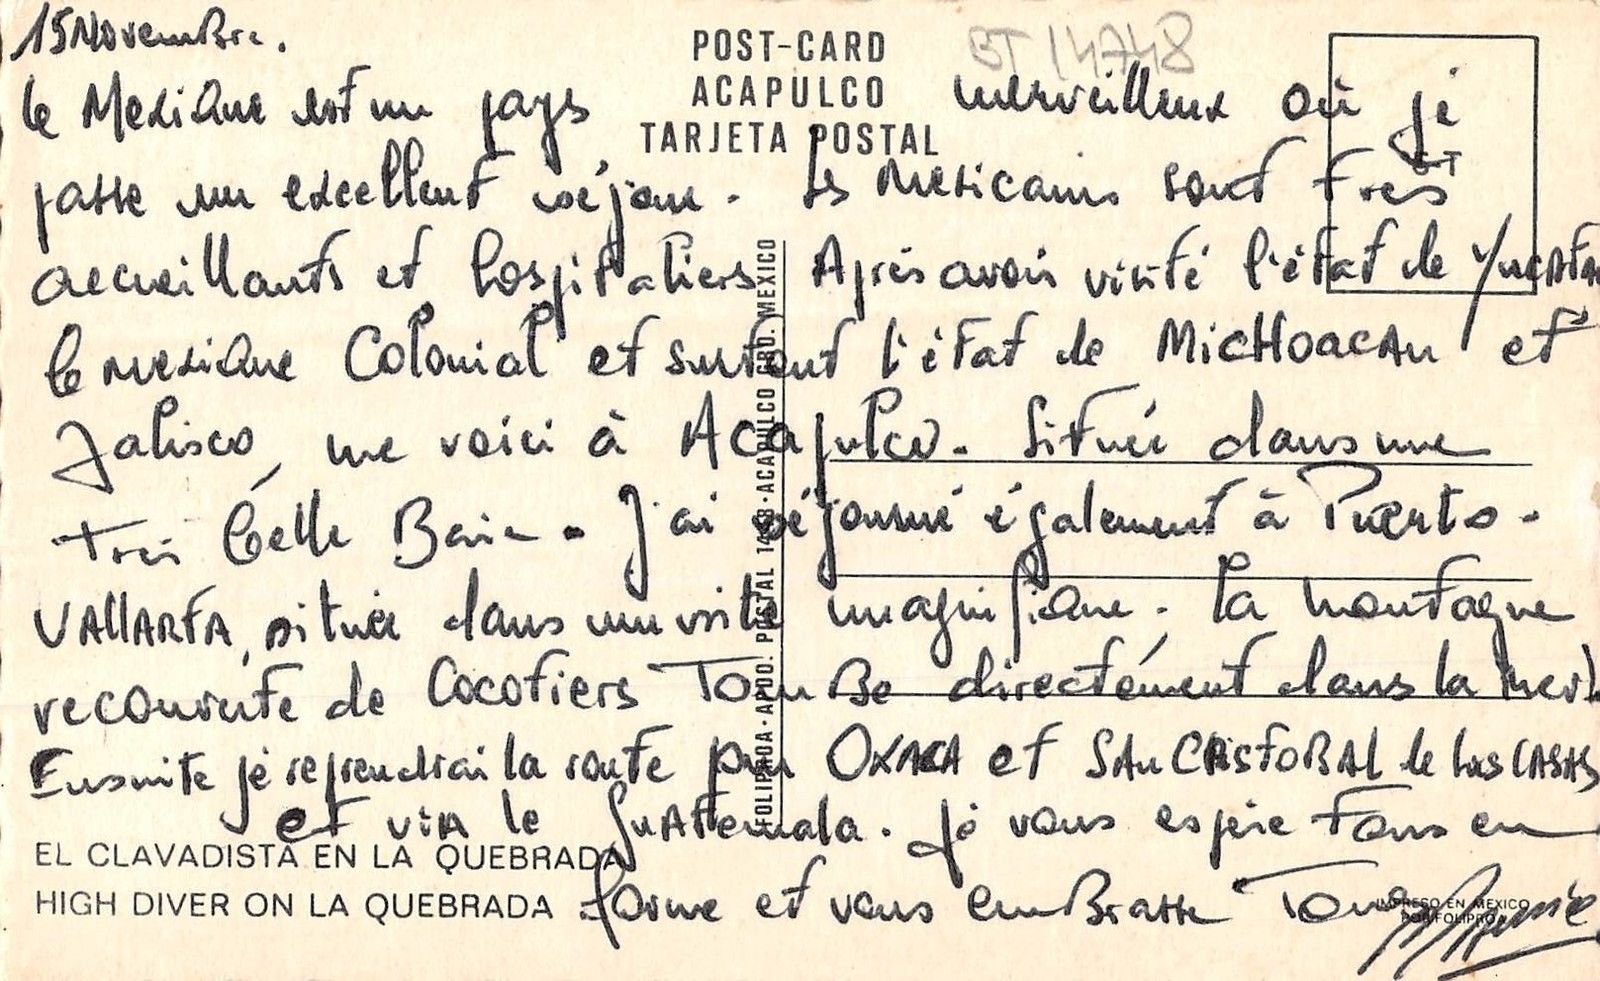 15 Novembre.
POST-CARD
ACAPULCO
TARJETA POSTAL
BT 14748
BT
le Mexique est un pays merveilleux où je
passe un excellent séjour. Les Mexicains sont très
accueillants et hospitaliers. Après avoir visité l'état de Yucatan
le mexique Colonial et surtout l'état de MicHoacan et
Jalisco, me voici à Acapulco. Située dans une
très belle Baie. J'ai séjourné également à Puerto-
VALLARTA, située dans un site magnifique. la montagne
recouverte de Cocotiers TomBe directément dans la mer!
Ensuite je reprendrai la route par OXACA et SAN CRISTOBAL de las CASAS
et viA le Guatemala. Je vous espère Tous en
forme et vous emBrasse Tous
EL CLAVADISTA EN LA QUEBRADA
HIGH DIVER ON LA QUEBRADA
FOLIPROA-APDO. POSTAL 148-ACAPULCO GRO. MEXICO
IMPRESO EN MEXICO
POR FOLIPROA